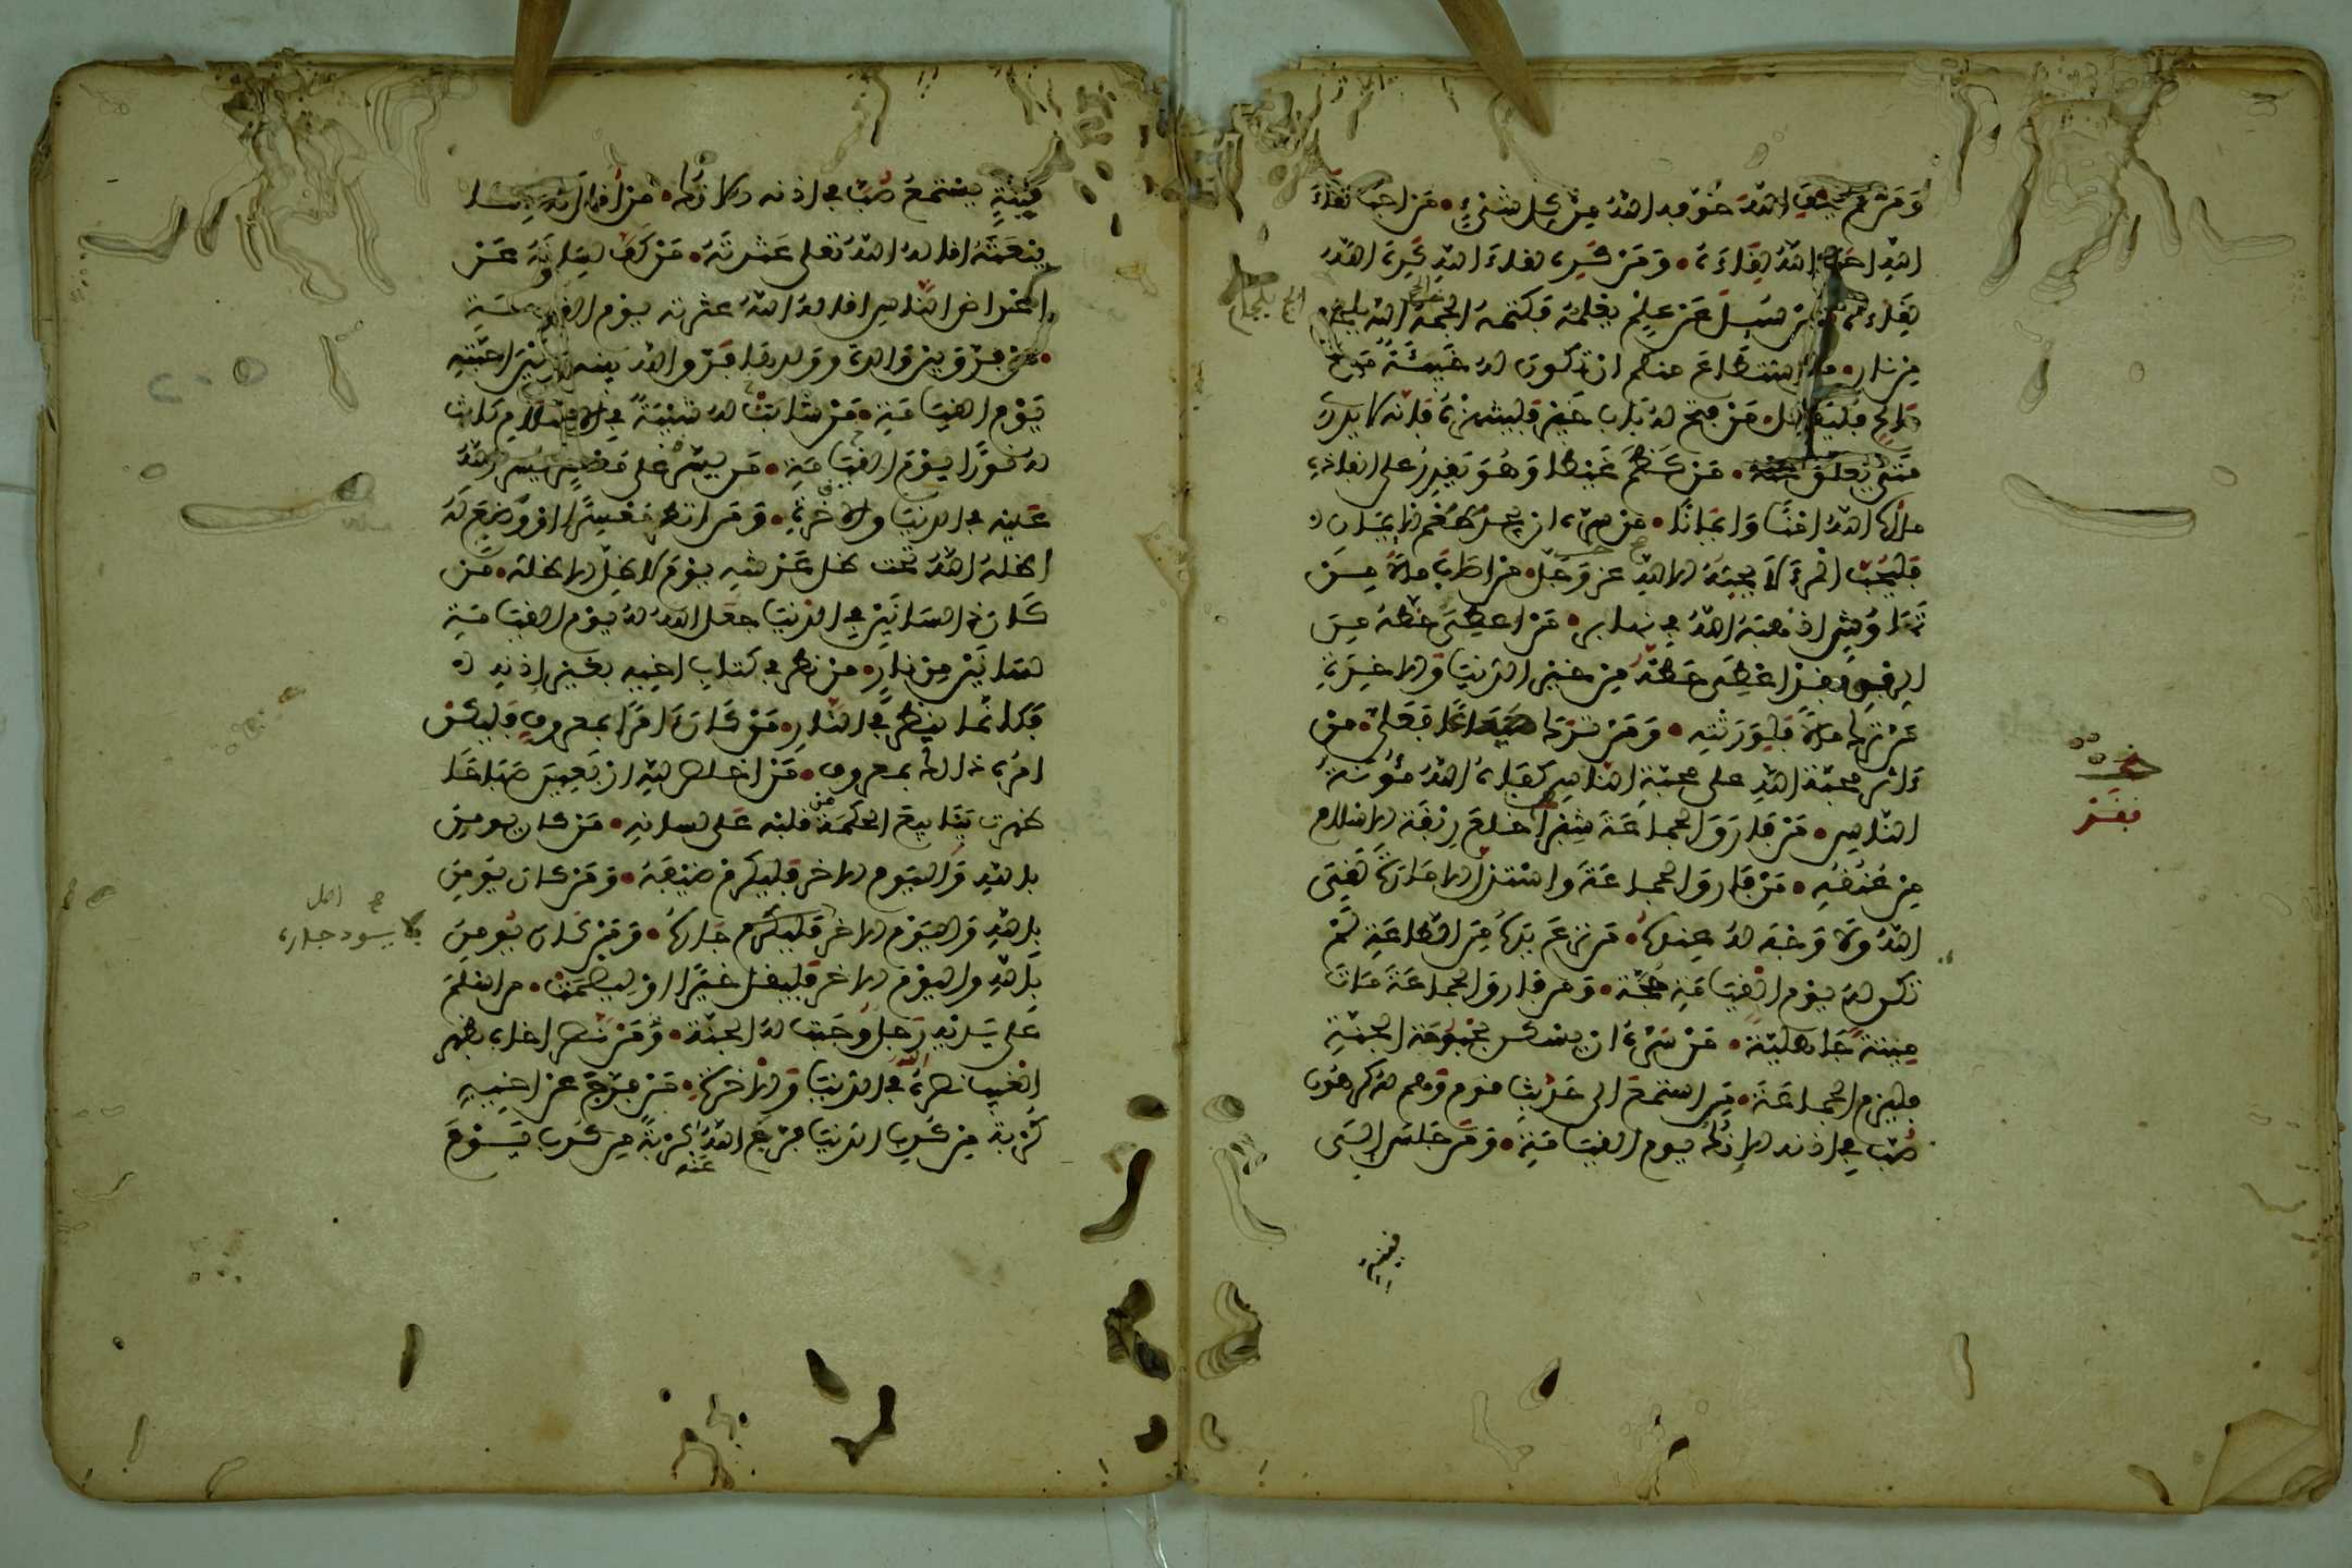 وَمَنْ لَمْ يَخَفِ اللهَ خَوَّفَهُ اللهُ مِنْ كُلِّ شَيْءٍ • مَنْ أَحَبَّ لِقَاءَ
اللهِ أَحَبَّ اللهُ لِقَاءَهُ • وَمَنْ كَرِهَ لِقَاءَ اللهِ كَرِهَ اللهُ
لِقَاءَهُ مَنْ سُئِلَ عَنْ عِلْمٍ يَعْلَمُهُ فَكَتَمَهُ أُلْجِمَ بلجام
مِنْ نَارٍ • من اسْتَطَاعَ مِنْكُمْ أَنْ تَكُونَ لَهُ خَبِيئَةٌ مِنْ عمل
صَالِحٍ فَلْيَفْعَلْ • مَنْ فُتِحَ لَهُ بَابُ خَيْرٍ فَلْيَنْتَهِزْهُ فَإِنَّهُ لَا يَدْرِي
مَتَى يُغْلَقُ عنه • مَنْ كَظَمَ غَيْظًا وَهُوَ يَقْدِرُ عَلَى إِنْفَاذِهِ
مَلَأَهُ اللهُ أَمْنًا وَإِيمَانًا • مَنْ سره أَنْ يَجِدَ طَعْمَ الْإِيمَانِ
فَلْيُحِبَّ الْمَرْءَ لَا يُحِبُّهُ إِلَّا لِلهِ عَزَّ وَجَلَّ • مَنْ أَصَابَ مَالًا مِنْ
نَهَاوِشَ أَذْهَبَهُ اللهُ فِي نَهَابِرَ • مَنْ أُعْطِيَ حَظَّهُ مِنَ
الرِّفْقِ فَقَدْ أُعْطِيَ حَظَّهُ مِنْ خَيْرِ الدُّنْيَا وَالْآخِرَةِ
مَنْ تَرَكَ مَالًا فَلِوَرَثَتِهِ • وَمَنْ تَرَكَ ضَيَاعًا فَعَلَيَّ • مَنْ
آثَرَ مَحَبَّةَ اللهِ عَلَى مَحَبَّةِ النَّاسِ كَفَاهُ اللهُ مَؤُونَةَ
النَّاسِ • مَنْ فَارَقَ الْجَمَاعَةَ شِبْرًا خَلَعَ رِبْقَةَ الْإِسْلَامِ
مِنْ عُنُقِهِ • مَنْ فَارَقَ الْجَمَاعَةَ وَاسْتَذَلَّ الْإِمَارَةَ لَقِيَ
اللهَ وَلَا وَجْهَ لَهُ عِنْدَهُ • مَنْ نَزَعَ يَدَهُ مِنَ الطَّاعَةِ لَمْ
تَكُنْ لَهُ يَوْمَ الْقِيَامَةِ حُجَّةٌ • وَمَنْ فَارَقَ الْجَمَاعَةَ مَاتَ
مِيتَةً جَاهِلِيَّةً • مَنْ سَرَّهُ أَنْ يَسْكُنَ بُحْبُوحَةَ الْجَنَّةِ
فَلْيَلْزَمِ الْجَمَاعَةَ • مَنِ اسْتَمَعَ إِلَى حَدِيثِ قَوْمٍ وَهُمْ لَهُ كَارِهُونَ
صُبَّ فِي أُذُنِهِ الْآنُكُ يَوْمَ الْقِيَامَةِ • وَمَنْ جَلَسَ إِلَى
فقد
قينة
قَيْنَةٍ يَسْتَمِعُ صُبَّ فِي أُذُنِهِ الْآنُكُ • مَنْ أَقَالَ مُسْلِمًا
بَيْعَتَهُ أَقَالَهُ اللهُ تَعَالَى عَثْرَتَهُ • مَنْ كَفَّ لِسَانَهُ عَنْ
أَعْرَاضِ النَّاسِ أَقَالَهُ اللهُ عَثْرَتَهُ يَوْمَ الْقِيَامَةِ
• مَنْ فَرَّقَ بَيْنَ وَالِدَةٍ وَوَلَدِهَا فَرَّقَ اللهُ بَيْنَهُ وَبَيْنَ أَحِبَّتِهِ
يَوْمَ الْقِيَامَةِ • مَنْ شَابَتْ لَهُ شَيْبَةٌ فِي الْإِسْلَامِ كَانَتْ
لَهُ نُورًا يَوْمَ الْقِيَامَةِ • مَنْ يَسَّرَ عَلَى مُعْسِرٍ يَسَّرَ اللهُ
عَلَيْهِ فِي الدُّنْيَا وَالْآخِرَةِ • وَمَنْ أَنْظَرَ مُعْسِرًا أَوْ وَضَعَ لَهُ
أَظَلَّهُ اللهُ تَحْتَ ظِلِّ عَرْشِهِ يَوْمَ لَا ظِلَّ إِلَّا ظِلُّهُ • مَنْ
كَانَ ذَا لِسَانَيْنِ فِي الدُّنْيَا جَعَلَ اللهُ لَهُ يَوْمَ الْقِيَامَةِ
لِسَانَيْنِ مِنْ نَارٍ • مَنْ نَظَرَ فِي كِتَابِ أَخِيهِ بِغَيْرِ إِذْنِهِ
فَكَأَنَّمَا يَنْظُرُ فِي النَّارِ • مَنْ كَانَ آمِرًا بِمَعْرُوفٍ فَلْيَكُنْ
أَمْرُهُ ذَلِكَ بِمَعْرُوفٍ • مَنْ أَخْلَصَ لِلهِ أَرْبَعِينَ صَبَاحًا
ظَهَرَتْ يَنَابِيعُ الْحِكْمَةِ مِنْ قَلْبِهِ عَلَى لِسَانِهِ • مَنْ كَانَ يُومِنُ
بِاللهِ وَالْيَوْمِ الْآخِرِ فَلْيُكْرِمْ ضَيْفَهُ • وَمَنْ كَانَ يُومِنُ
بِاللهِ وَالْيَوْمِ الْآخِرِ فَلْيُكْرِمْ جَارَهُ • وَمَنْ كَانَ يُومِنُ
بِاللهِ وَالْيَوْمِ الْآخِرِ فَلْيَقُلْ خَيْرًا أَوْ لِيَصْمُتْ • مَنْ أَسْلَمَ
عَلَى يَدَيْهِ رَجُلٌ وَجَبَتْ لَهُ الْجَنَّةُ • وَمَنْ نَصَرَ أَخَاهُ بِظَهْرِ
الْغَيْبِ نَصَرَهُ اللهُ فِي الدُّنْيَا وَالْآخِرَةِ • مَنْ فَرَّجَ عَنْ أَخِيهِ
كُرْبَةً مِنْ كُرَبِ الدُّنْيَا فَرَّجَ اللهُ عَنْهُ كُرْبَةً مِنْ كُرَبِ يَوْمِ